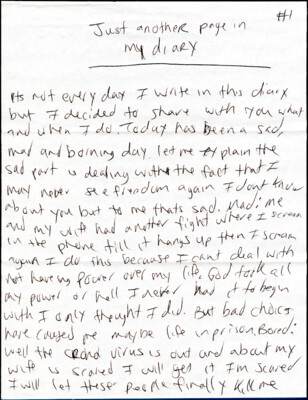 #1
Just another page in
my diary
Its not every day I write in this diary
but I decided to share with you what
and when I do. Today has been a sad,
mad and boining day. let me explain the
sad part is dealing with the fact that I
may never see freindom again I dont know
about you but to me thats sad. Mad: me
and my wife had another fight where I scream
in the phone till it hangs up then I scream
again I do this because I cant deal with
not having power over my life. God took all
my power or hell I never had it to begin
with I only thought I did. But bad choices
have caused me maybe life in prison. Bored:
well the virus is out and about my
wife is scared I will get it I'm scared
I will let these people finally kill me